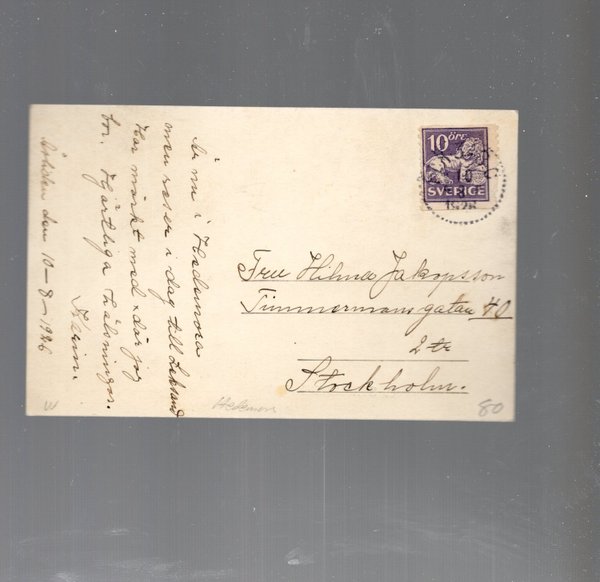 Är nu i Hedemora
men reser i dag till
Har märkt med x där jag
bor. Hjärtliga hälsningar.
Karin.
den 10-8-1926
10 ÖRE
SVERIGE
10
1926
Fru Hilma Jakopsson
Timmermansgatan 40
2 tr
Stockholm.
Hedemora
80
W